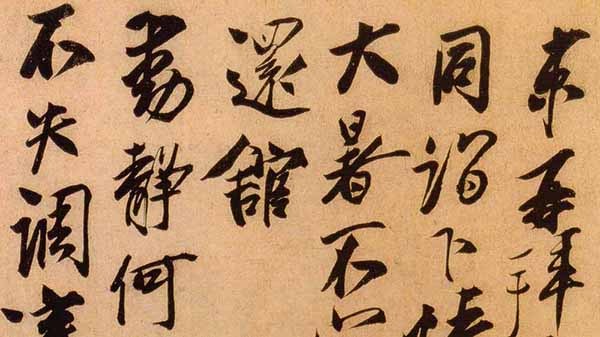 芾再拜
同詣下
大暑不
還舘
動靜何
不失調